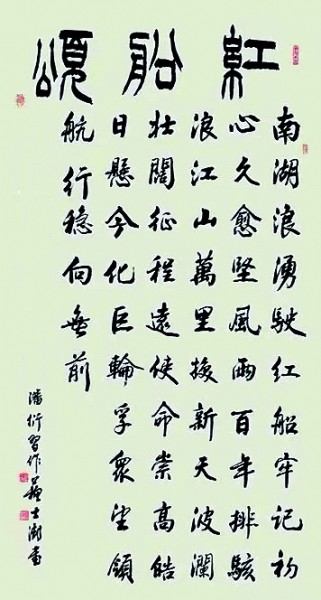 紅船頌
南湖浪湧駛紅船牢記初
心久愈堅風雨百年排駭
浪江山萬里換新天波瀾
壯闊征程遠使命崇高皓
日懸今化巨輪孚衆望領
航行穩向無前
潘衍習作蘇士澍書